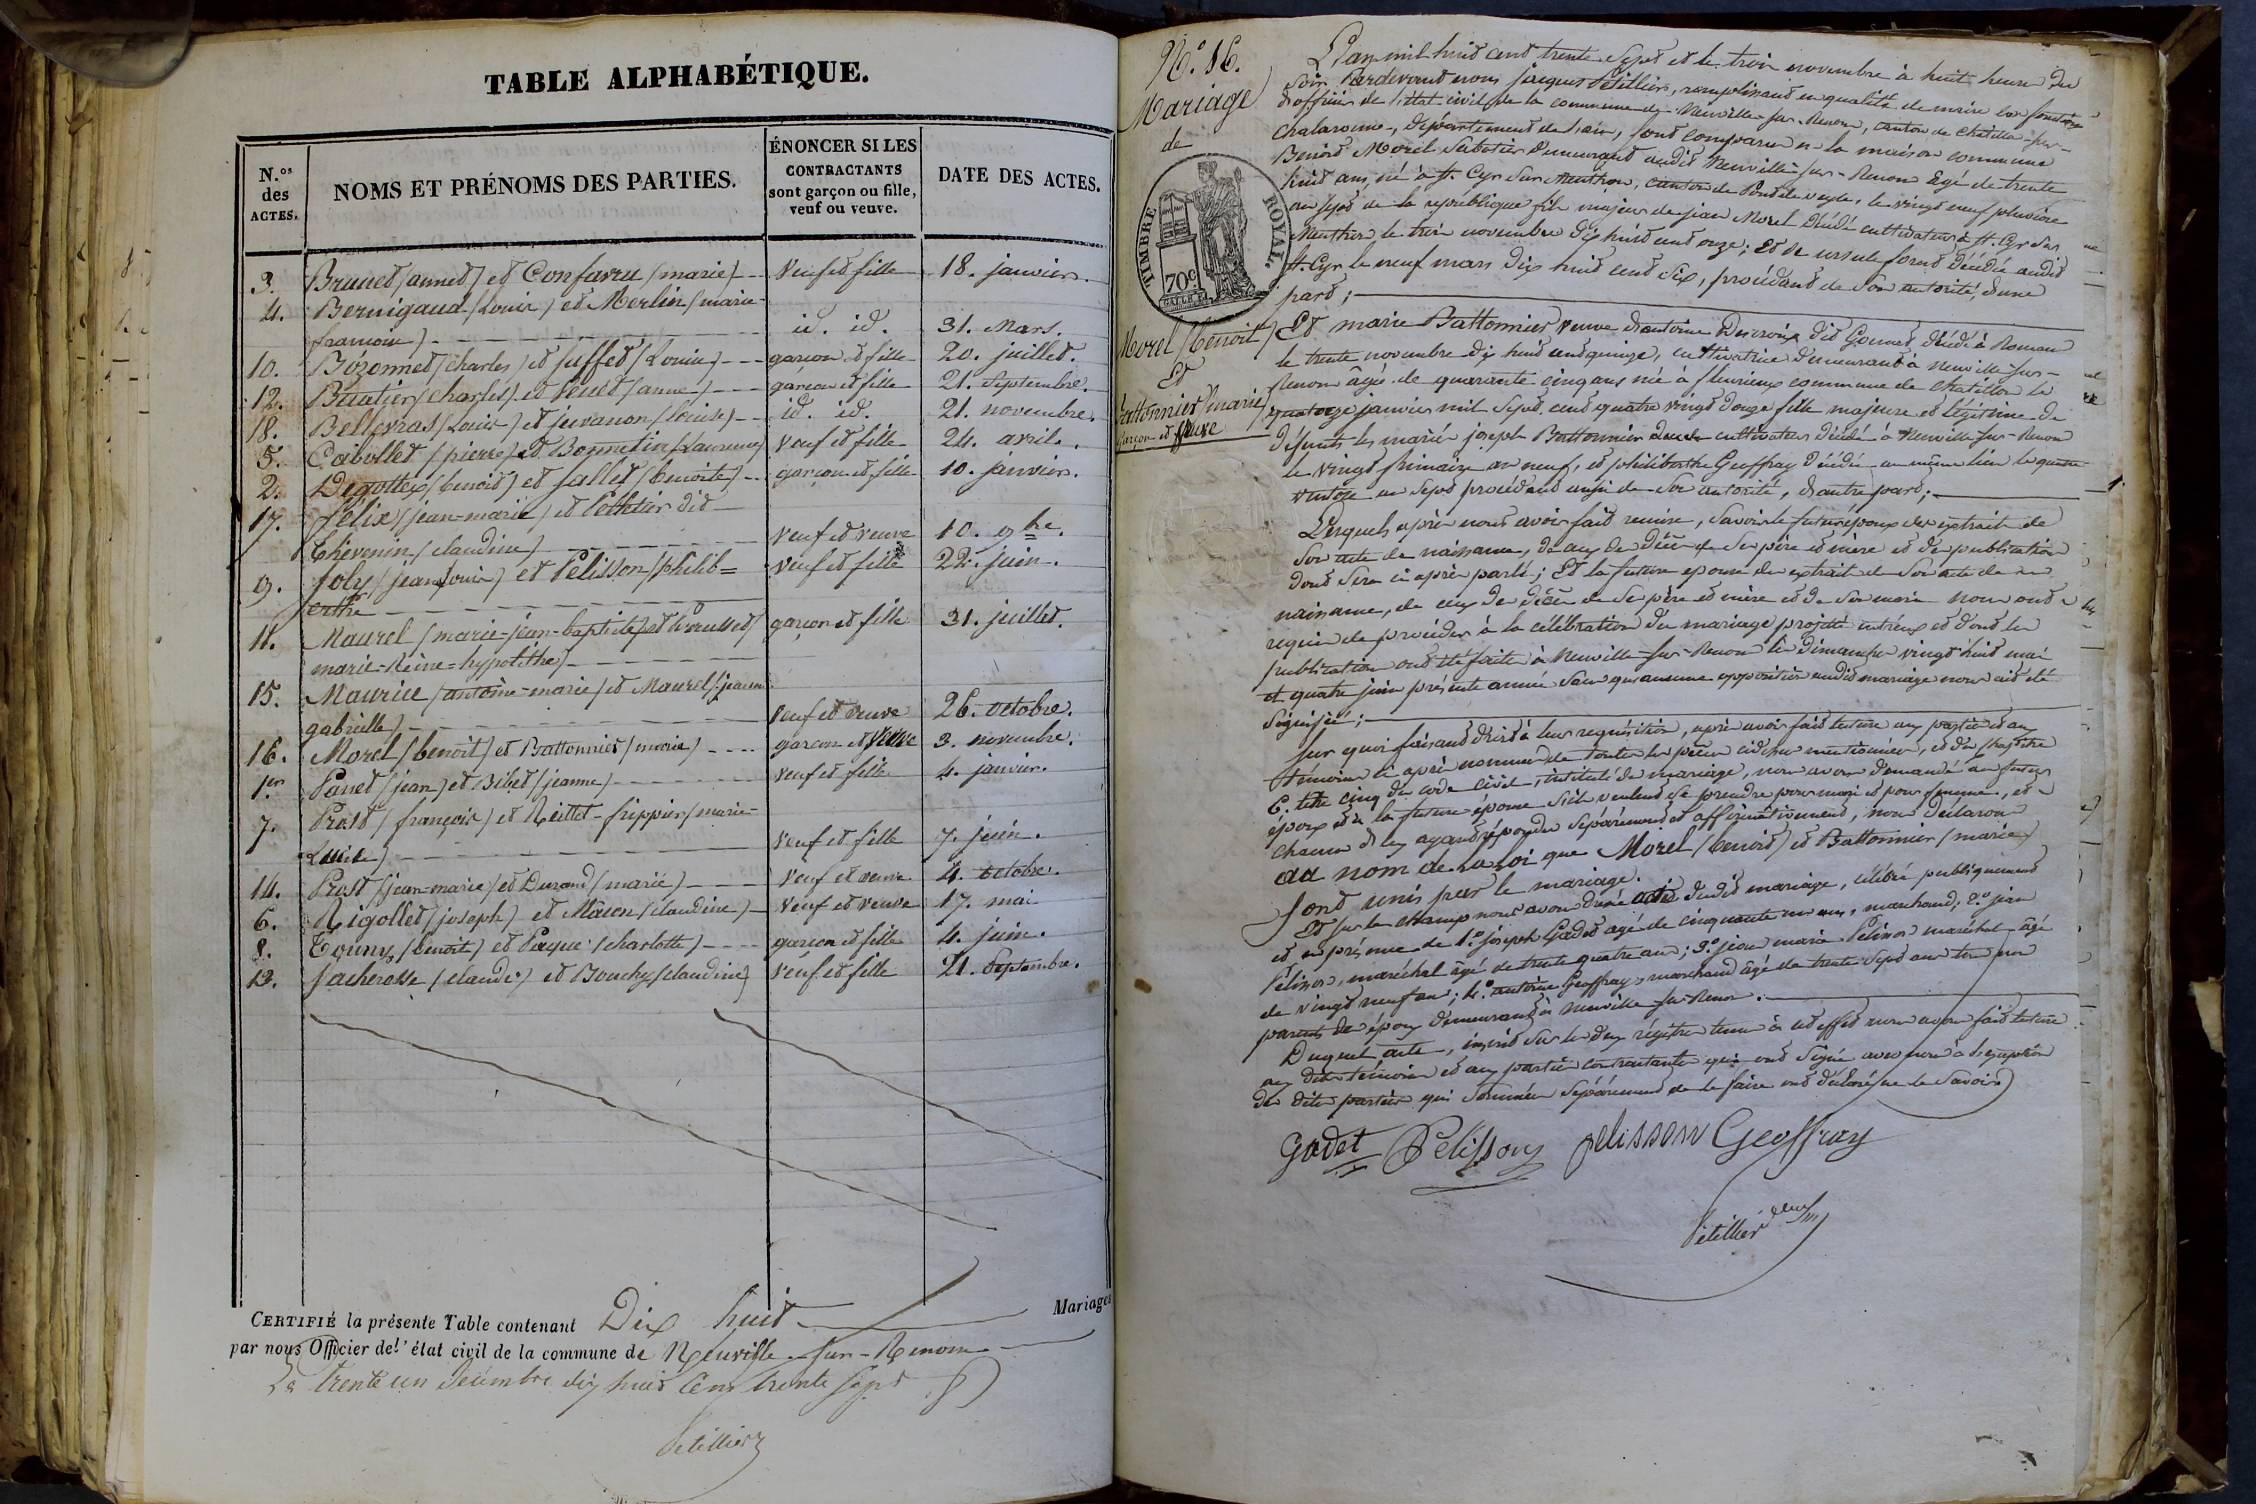 TABLE ALPHABÉTIQUE.
N.os des ACTES.
NOMS ET PRÉNOMS DES PARTIES.
ÉNONCER SI LES CONTRACTANTS sont garçon ou fille, veuf ou veuve.
DATE DES ACTES.
3. Brunet (annet) et Confavru (marie) Veuf et fille 18. janvier.
4. Bernigaud (Louis) et Merlin (marie
françoise) id. id. 31. Mars.
10. Bozonnet (charles) et Juffet (Louise) garçon et fille 20. juillet.
12. Buatier (charles) et Venet (anne) garçon et fille 21. Septembre.
18. Bellevras (Louis) et juvanon (louise) id. id. 21. novembre.
5. Cabollet (pierre) et Bonnetin (Laurence) Veuf et fille 24. avril.
2. Degottex (benoit) et Jallet (benoite) garçon et fille 10. janvier.
17. Félix (jean-marie) et Pelletier dit
Thévenin (claudine) Veuf et veuve 10. 9bre.
9. Joly (jean Louis) et Pelisson (philib=
erthe Veuf et fille 22. juin.
11. Maurel (marie-jean-baptiste) et
marie-Reine-hypolithe) garçon et fille 31. juillet.
15. Maurice (antoine-marie) et Maurel (jeanne
gabrielle) Veuf et veuve 26. octobre.
16. Morel (benoit) et Battonnier (marie) garçon et Veuve 3. novembre.
1er Panet (jean) et Bibet (jeanne) Veuf et fille 4. janvier.
7. Prost (françois) et Neillet-frippier (marie-
Louise) Veuf et fille 7. juin.
14. Prost (jean-marie) et Durand (marie) Veuf et veuve 4. octobre.
6. Rigollet (joseph) et Mâcon (claudine) Veuf et veuve 17. mai
8. Touny (benoit) et Paque (charlotte) garçon et fille 4. juin.
13. Vacheresse (claude) et Bouchy (claudine) Veuf et fille 21. Septembre.
CERTIFIÉ la présente Table contenant Dix huit Mariages
par nous Officier de l'état civil de la commune de Neuville-sur-Renom
Le trente un décembre dix huit cent trente sept
Petillier
N.o 16.
Mariage
de
TIMBRE ROYAL.
70c.
Morel (benoit)
Et
Battonnier (marie)
garçon et veuve
L'an mil huit cent trente sept et le trois novembre à huit heures du
soir Pardevant nous jacques Petillier, remplissant en qualité de maire les fonctions
d'officier de l'état civil de la commune de Neuville-sur-Renom, canton de Chatillon-sur-
Chalaronne, département de l'ain, sont comparus en la maison commune
Benoit Morel Sabotier demeurant audit Neuville-sur-Renom âgé de trente
huit ans, né à St. Cyr sur Menthon, canton de Pont de veyle, le vingt neuf pluviose
an sept de la république fils majeur de jean Morel décédé cultivateur à St. Cyr sur
Menthon le trois novembre dix huit cent onze; et de ursule forest décédée audit
St. Cyr le neuf mars dix huit cent six, procédant de son autorité, d'une
part;
Et marie Battonnier veuve d'antoine Descroix dit Gonnet décédé à Roman
le trente novembre dix huit cent quinze, cultivatrice demeurant à Neuville-sur-
Renom âgée de quarante cinq ans née à fleurieux commune de Chatillon le
quatorze janvier mil sept cent quatre vingt douze fille majeure et légitime de
defunts les mariés joseph Battonnier cultivateur décédé à Neuville-sur-Renom
le vingt frimaire an neuf, et philiberthe Geoffray décédée au même lieu le quatre
ventose an sept procédant aussi de son autorité, d'autre part;
Lesquels après nous avoir fait remise, savoir le futur époux des extraits de
son acte de naissance, de ceux de décès de ses père et mère et de publication
dont sera ci après parlé; Et la future epouse des extraits de son acte de
naissance, de ceux de décès de ses père et mère et de son mari nous ont
requis de procéder à la célébration du mariage projetté entr'eux et dont les
publications ont été faite à Neuville-sur-Renom les dimanches vingt huit mai
et quatre juin présente année sans qu'aucune opposition audit mariage nous ait été
signifiée;
Sur quoi faisant droit à leur requisition, après avoir fait lecture aux parties et aux
témoins ci après nommés de toutes les pièces cidessus mentionnées, et du chapitre
6. titre cinq du code civil, intitulé du mariage, nous avons demandé au futur
époux et à la future épouse s'ils veulent se prendre pour mari et pour femme, et
chacun d'eux ayant répondu séparément et affirmativement, nous déclarons
au nom de la loi que Morel (benoit) et Battonnier (marie)
sont unis par le mariage.
Et sur le champ nous avons dressé acte dudit mariage, célébré publiquement
et en présence de 1.o joseph Gadet agé de cinquante un ans, marchand, 2.o jean
Pelisson, maréchal âgé de trente quatre ans; 3.o jean marie Pelisson maréchal âgé
de vingt neuf ans; 4.o antoine Geoffray, marchand âgé de trente sept ans tous non
parents des époux demeurant à Neuville-sur-Renom.
Duquel acte, inscrit sur les deux régistres tenus à cet effet nous avons fait lecture
aux dits témoins et aux parties contractantes qui ont signé avec nous à l'exception
des dites parties qui sommées séparément de le faire ont déclaré ne le savoir)
Gadet Pélisson pelisson Geoffray
Petillier